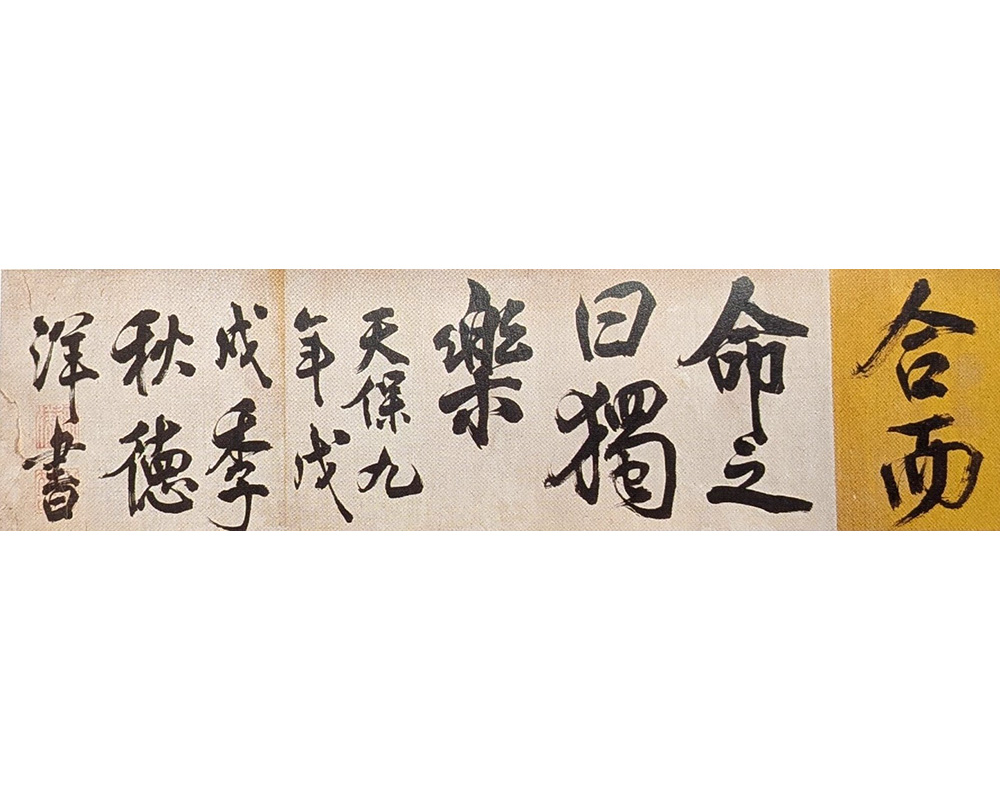 合而
命之
曰獨
樂
天保九
年戊
戌季
秋徳
洋書